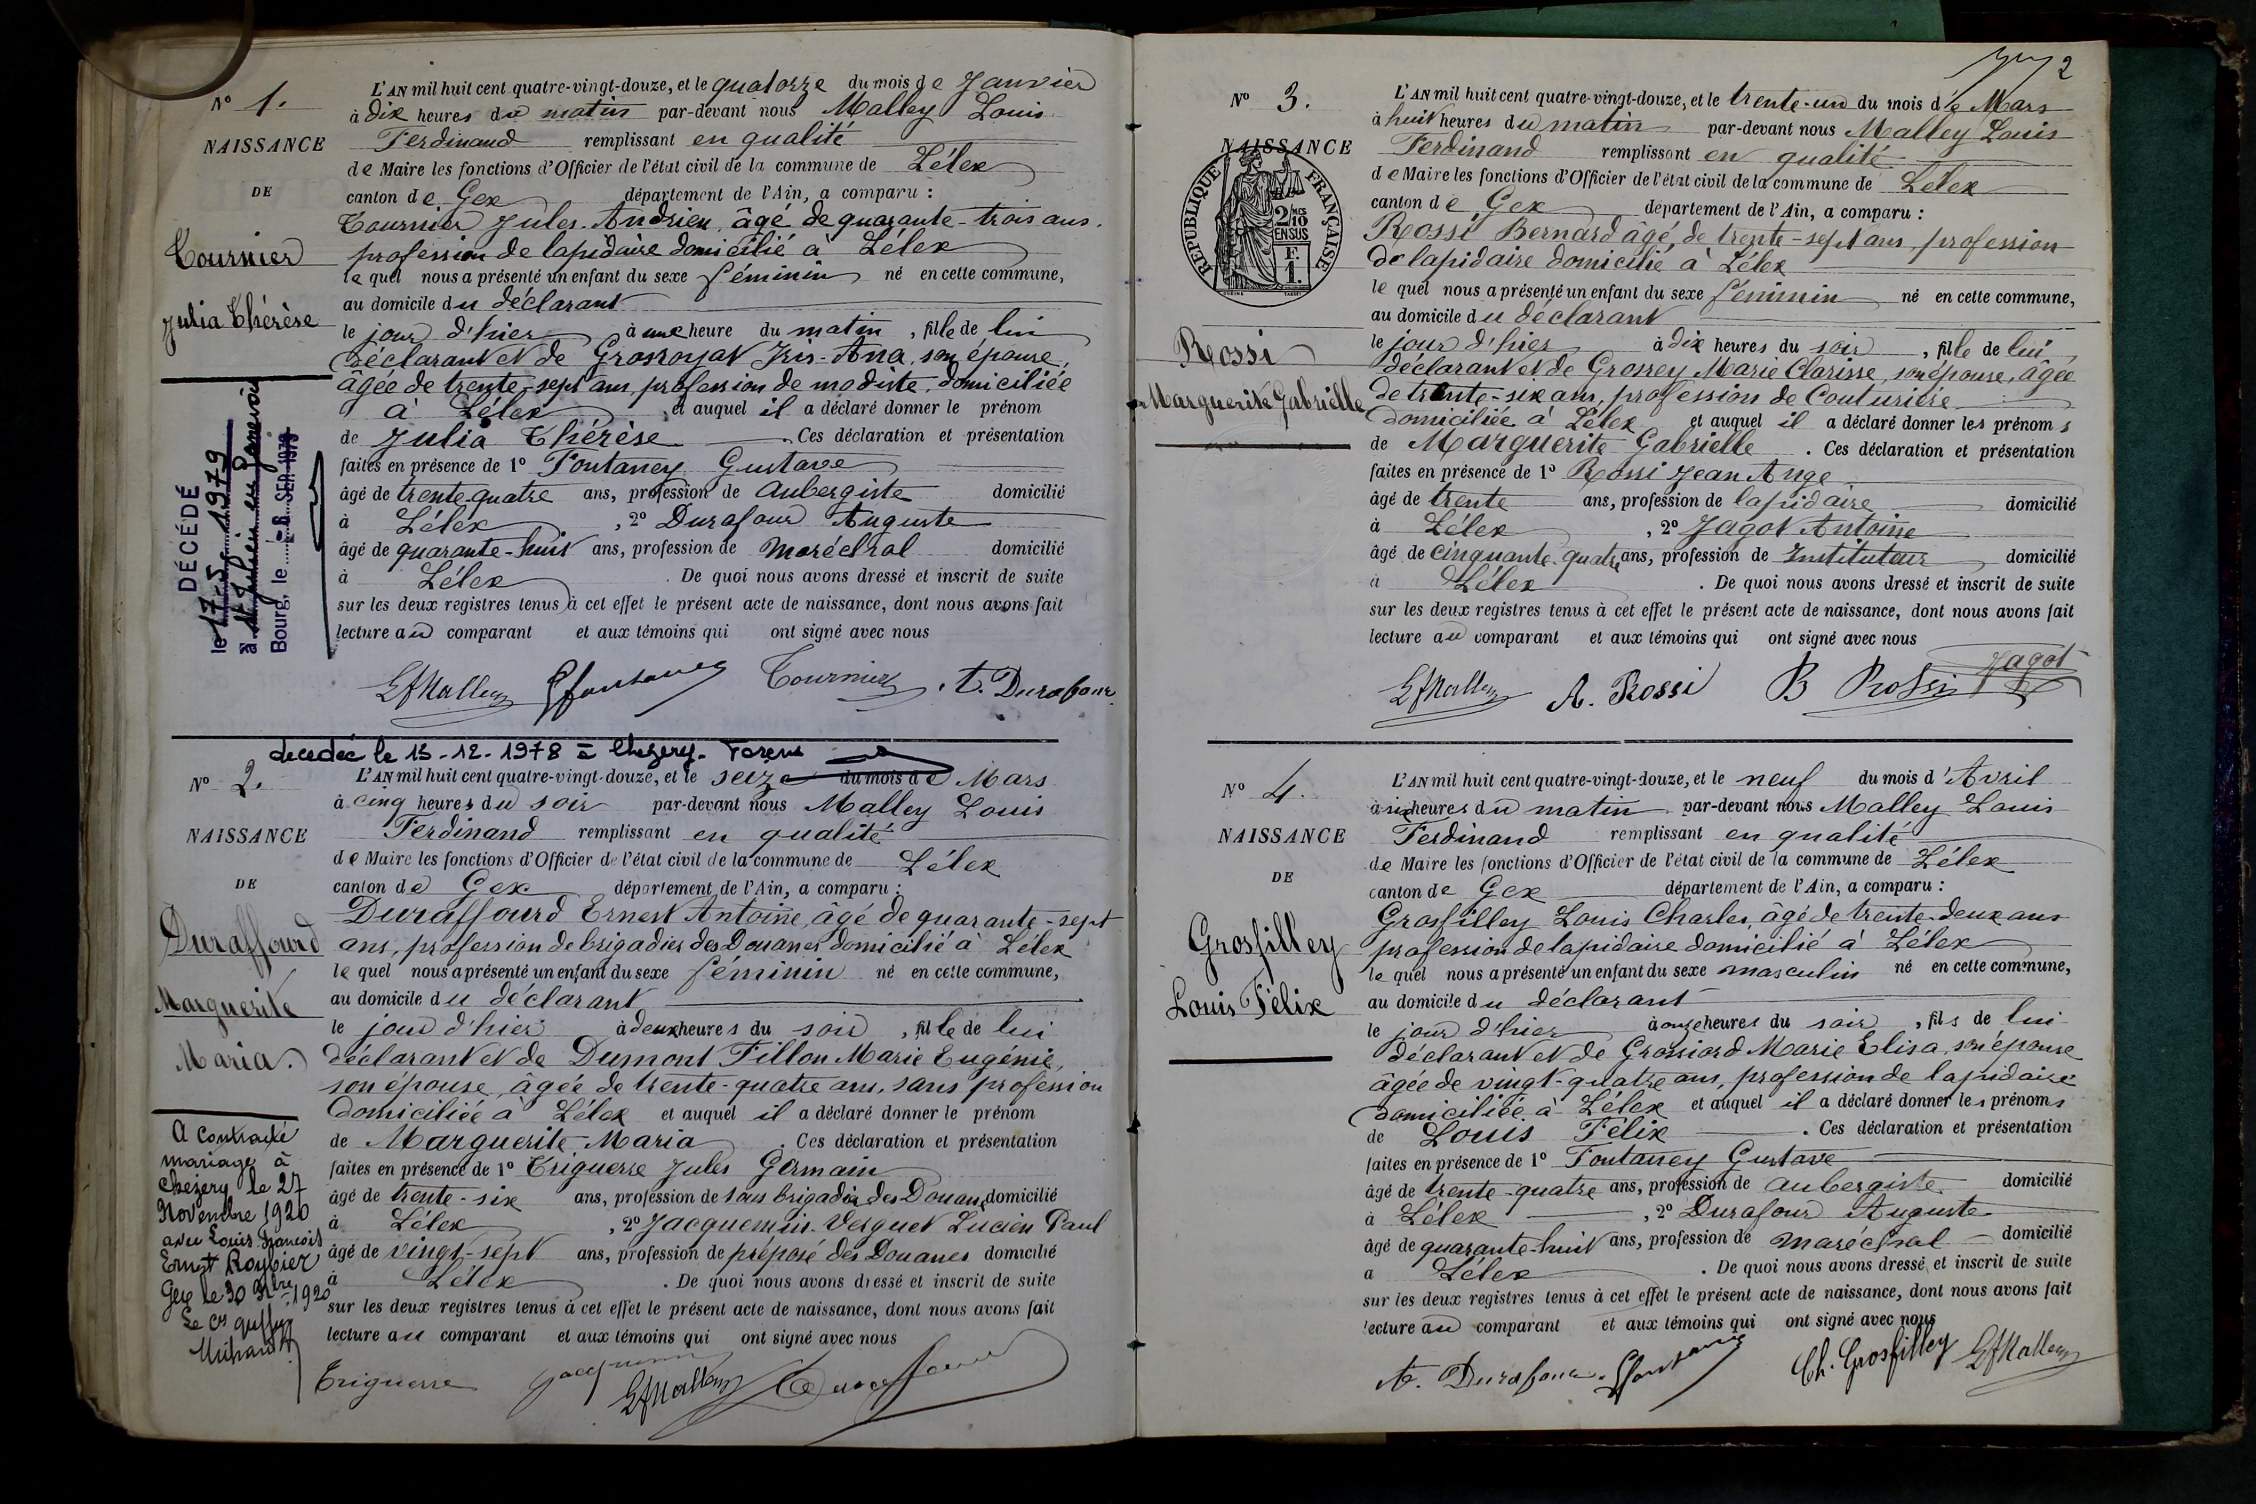 N° 1.
NAISSANCE
DE
Tournier
Julia Thérèse
DÉCÉDÉ
le 17-5-1979
à St Julien en Genevois
Bourg, le - 8 SEP. 1979
L'AN mil huit cent quatre-vingt-douze, et le quatorze du mois de Janvier
à dix heures du matin par-devant nous Malley Louis
Ferdinand remplissant en qualité
de Maire les fonctions d'Officier de l'état civil de la commune de Lélex
canton de Gex département de l'Ain, a comparu :
Tournier Jules Andrien, âgé de quarante-trois ans.
profession de lapidaire domicilié à Lélex
le quel nous a présenté un enfant du sexe féminin né en cette commune,
au domicile du déclarant
le jour d'hier à une heure du matin, fille de lui
déclarant et de Grosroyat Iris-Ana, son épouse,
âgée de trente-sept ans, profession de modiste, domiciliée
à Lélex et auquel il a déclaré donner le prénom
de Julia Thérèse. Ces déclaration et présentation
faites en présence de 1° Fontanney Gustave
âgé de trente-quatre ans, profession de aubergiste domicilié
à Lélex, 2° Durafour Auguste
âgé de quarante-huit ans, profession de maréchal domicilié
à Lélex. De quoi nous avons dressé et inscrit de suite
sur les deux registres tenus à cet effet le présent acte de naissance, dont nous avons fait
lecture au comparant et aux témoins qui ont signé avec nous
LfMalley Gfontaney Tournier A. Durafour
decedée le 15-12-1978 à Chezery-Forens
N° 2.
NAISSANCE
DE
Duraffourd
Marguerite
Maria.
A contracté
mariage à
Chezery le 27
Novembre 1920
avec Louis François
Ernest Roybier
Gex le 30 9bre 1920
Le
L'AN mil huit cent quatre-vingt-douze, et le seize du mois de Mars
à cinq heures du soir par-devant nous Malley Louis
Ferdinand remplissant en qualité
de Maire les fonctions d'Officier de l'état civil de la commune de Lélex
canton de Gex département de l'Ain, a comparu :
Duraffourd Ernest Antoine, âgé de quarante-sept
ans, profession de brigadier des Douanes domicilié à Lélex
le quel nous a présenté un enfant du sexe féminin né en cette commune,
au domicile du déclarant
le jour d'hier à deux heures du soir, fille de lui
déclarant et de Dumont Fillon Marie Eugénie,
son épouse, âgée de trente-quatre ans, sans profession
domiciliée à Lélex et auquel il a déclaré donner le prénom
de Marguerite-Maria. Ces déclaration et présentation
faites en présence de 1° Triguerre Jules Germain
âgé de trente-six ans, profession de sous brigadier des Douanes domicilié
à Lélex, 2° Jacquemin-Verguet Lucien Paul
âgé de vingt-sept ans, profession de préposé des Douanes domicilié
à Lélex. De quoi nous avons dressé et inscrit de suite
sur les deux registres tenus à cet effet le présent acte de naissance, dont nous avons fait
lecture au comparant et aux témoins qui ont signé avec nous
Triguerre Jacquemin LfMalley Duraffourd
2
N° 3.
NAISSANCE
RÉPUBLIQUE FRANÇAISE
2/10 MES
EN SUS
F.
1.
Rossi
Marguerite Gabrielle
L'AN mil huit cent quatre-vingt-douze, et le trente-un du mois de Mars
à huit heures du matin par-devant nous Malley Louis
Ferdinand remplissant en qualité
de Maire les fonctions d'Officier de l'état civil de la commune de Lélex
canton de Gex département de l'Ain, a comparu :
Rossi Bernard âgé, de trente-sept ans, profession
de lapidaire domicilié à Lélex
le quel nous a présenté un enfant du sexe féminin né en cette commune,
au domicile du déclarant
le jour d'hier à dix heures du soir, fille de lui
déclarant et de Grossey Marie Clarisse, son épouse, âgée
de trente-six ans, profession de Couturière
domiciliée à Lélex et auquel il a déclaré donner les prénoms
de Marguerite Gabrielle. Ces déclaration et présentation
faites en présence de 1° Rossi Jean Ange
âgé de trente ans, profession de lapidaire domicilié
à Lélex, 2° Jagot Antoine
âgé de cinquante-quatre ans, profession de Instituteur domicilié
à Lélex. De quoi nous avons dressé et inscrit de suite
sur les deux registres tenus à cet effet le présent acte de naissance, dont nous avons fait
lecture au comparant et aux témoins qui ont signé avec nous
LfMalley A. Rossi B Rossi Jagot
N° 4.
NAISSANCE
DE
Grosfilley
Louis Félix
L'AN mil huit cent quatre-vingt-douze, et le neuf du mois d'Avril
à six heures du matin par-devant nous Malley Louis
Ferdinand remplissant en qualité
de Maire les fonctions d'Officier de l'état civil de la commune de Lélex
canton de Gex département de l'Ain, a comparu :
Grosfilley Louis Charles, âgé de trente-deux ans
profession de lapidaire domicilié à Lélex
le quel nous a présenté un enfant du sexe masculin né en cette commune,
au domicile du déclarant
le jour d'hier à onze heures du soir, fils de lui
déclarant et de Grossiord Marie Elisa, son épouse
âgée de vingt-quatre ans, profession de lapidaire
domiciliée à Lélex et auquel il a déclaré donner les prénoms
de Louis Félix. Ces déclaration et présentation
faites en présence de 1° Fontanney Gustave
âgé de trente-quatre ans, profession de aubergiste domicilié
à Lélex, 2° Durafour Auguste
âgé de quarante-huit ans, profession de maréchal domicilié
a Lélex. De quoi nous avons dressé et inscrit de suite
sur les deux registres tenus à cet effet le présent acte de naissance, dont nous avons fait
lecture au comparant et aux témoins qui ont signé avec nous
A. Durafour Gfontaney Ch. Grosfilley LfMalley